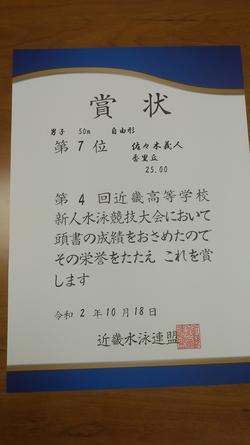 賞状
男子 50m 自由形
第7位 佐々木義人
香里丘
25.00
第 4 回近畿高等学校
新人水泳競技大会において
頭書の成績をおさめたので
その栄誉をたたえ これを賞
します
令和 2 年 10 月 18 日
近畿水泳連盟